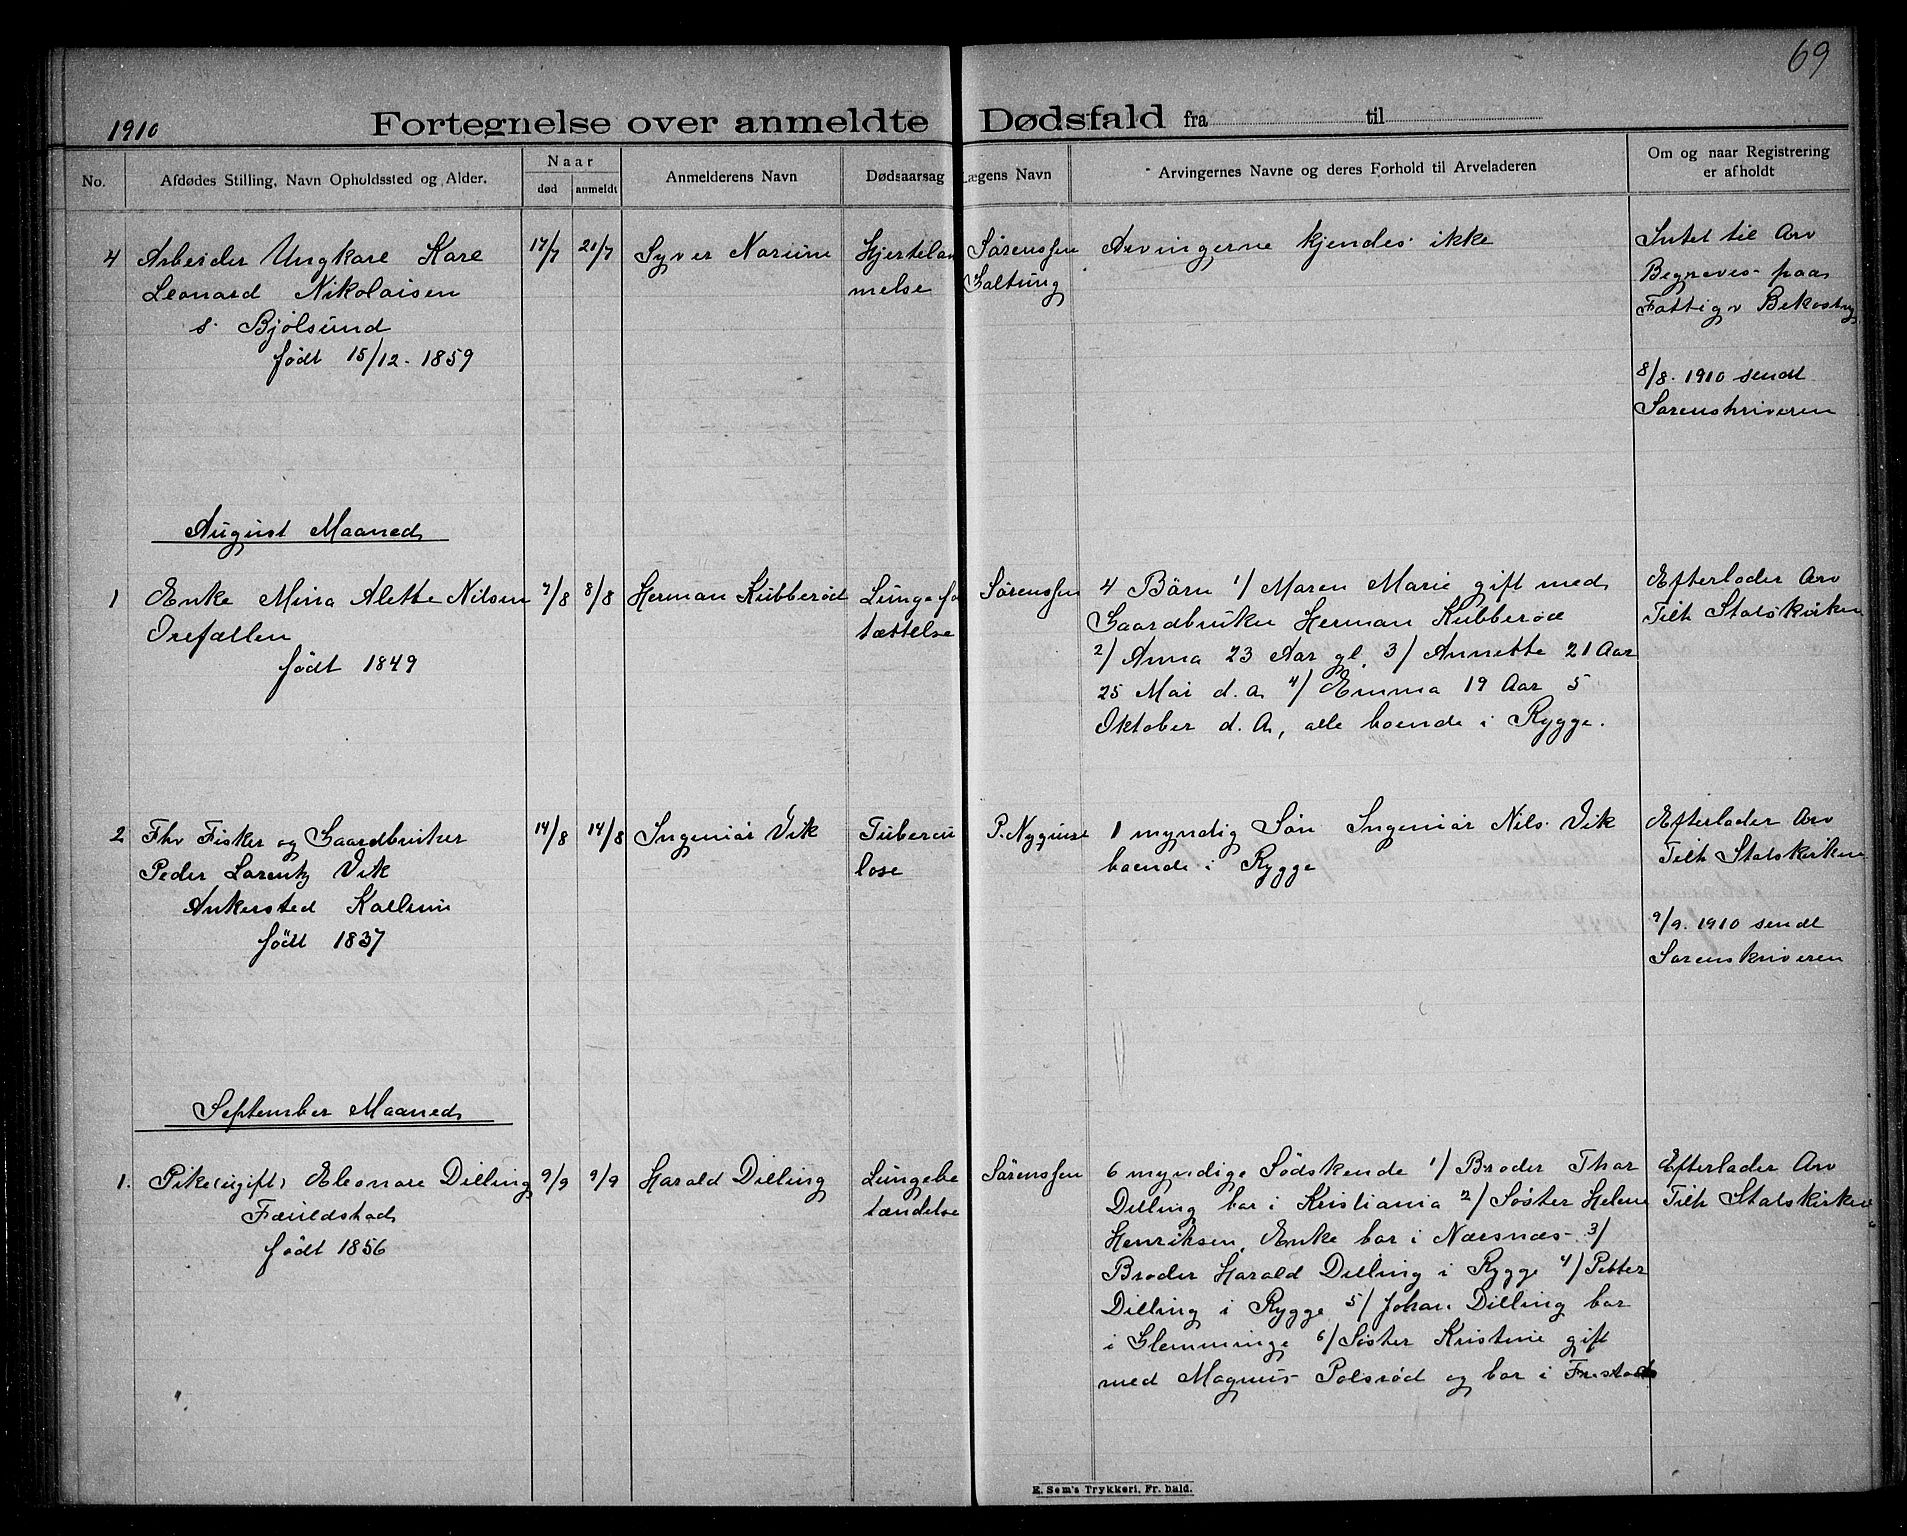 69
1910
Fortegnelse over anmeldte Dødsfald fra til
No.
Afdødes Stilling, Navn Opholdssted og Alder.
Naar
død
anmeldt
Anmelderens Navn
Dødsaarsag
Lægens Navn
Arvingernes Navne og deres Forhold til Arveladeren
Om og naar Registrering
er afholdt
4
Arbeider Ungkare Kare
Leonard Nikolaisen
s. Bjölsund
født 15/12. 1859
17/7
21/7
Syver Narum
Hjertelam
melse
Sørenssen
Saltung
Arvingerne kjendes ikke
Intet til Arv
Begraves paa
Fattigv Bekostng
8/8. 1910 sendt
Sorenskriveren
August Maaned
1
Enke Mina Alette Nilsen
Orefallen
født 1849
7/8
8/8
Herman Kubberød
Lungefo
tættelse
Sørenssen
4 Børn 1/ Maren Marie gift med
Gaardbruker Herman Kubberød
2/ Anna 23 Aar gl. 3/ Annette 21 Aar
25 Mai d. a. 4/ Emma 19 Aar 5
Oktober d. A, alle boende i Rygge.
Efterlader Arv
Tilh Statskirken
2
Fhv Fisker og Gaardbruker
Peder Larentz Vik
Ankersted Kallum
født 1837
14/8
14/8
Ingeniør Vik
Tubercu
lose
P. Nyquist
1 myndig Søn Ingeniør Nils Vik
boende i Rygge
Efterlader Arv
Tilh Statskirken
9/9. 1910 sendt
Sorenskriveren
September Maaned
1.
Pike (ugift) Eleonare Dilling
Færeldstad
født 1856
9/9
9/9
Harald Dilling
Lungebe
tændelse
Sørenssen
6 myndige Sødskende 1/ Broder Thor
Dilling bor i Kristiania 2/ Søster Helene
Henriksen, Enke bor i Nærsnæs 3/
Broder Harald Dilling i Rygge 4/ Petter
Dilling i Rygge 5/ Johan Dilling bor
i Glemminge 6/ Søster Kristine gift
med Magnus Polsrød og bor i Frestad
Efterlader Arv
Tilh Statskirken
E. Sem's Trykkeri, Fr. hald.